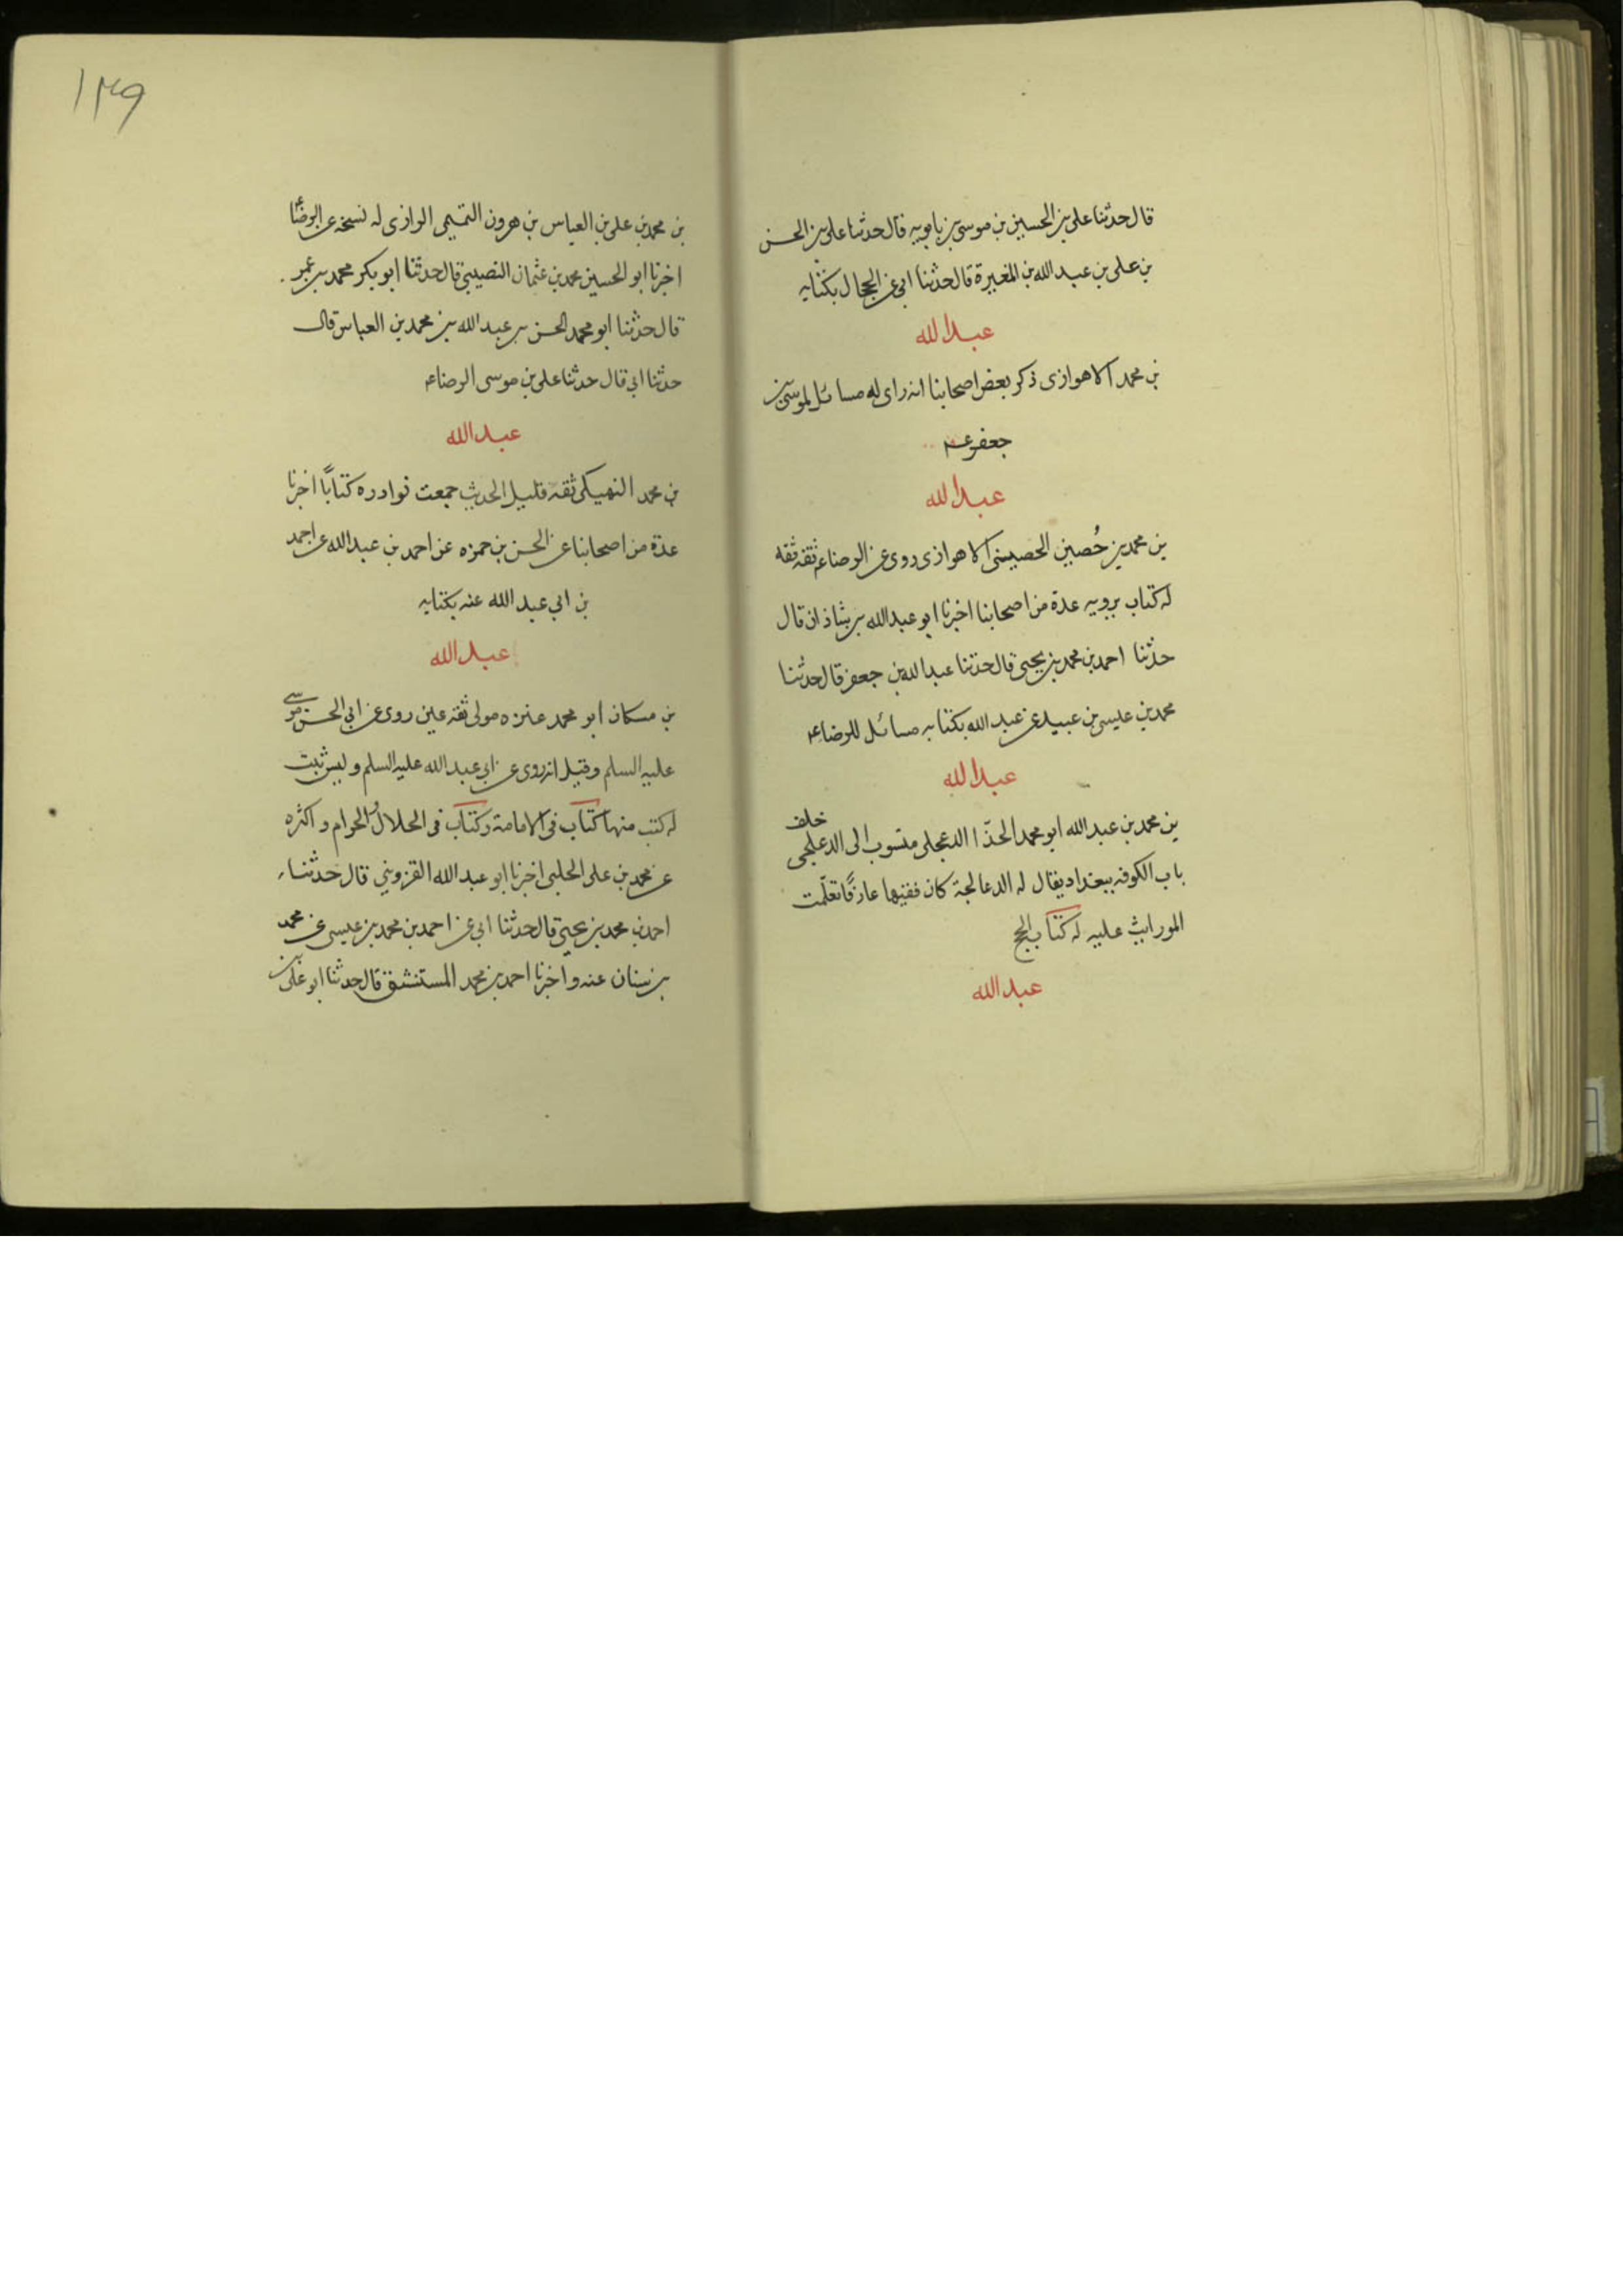 قال حدثنا علي بن الحسين بن موسى بن بابويه قال حدثنا علي بن الحسن
بن علي بن عبد الله بن المغيرة قال حدثنا ابي عن الحجال بكتابه
عبد الله
بن محمد الاهوازى ذكر بعض اصحابنا انه راى له مسائل لموسى بن
جعفر ع‍م
عبد الله
بن محمد بن حُصين الحصينى الاهوازى روى عن الرضا ع‍م ثقة ثقه
له كتاب يرويه عدة من اصحابنا اخبرنا ابو عبد الله بن شاذان قال
حدثنا احمد بن محمد بن يحيى قال حدثنا عبد الله بن جعفر قال حدثنا
محمد بن عيسى بن عبيد عن عبد الله بكتابه مسائل للرضا ع‍م
عبد الله
بن محمد بن عبد الله ابو محمد الحذّا الدعجلى منسوب الى الدعلجى خلف
باب الكوفه ببغداد يقال له الدعالجة كان فقيها عارفًا تعلّمت
المواريث عليه له كتاب الحج
عبد الله
١٣٩
بن محمد بن علي بن العباس بن هرون التميمى الرازى له نسخه عن الرضا ع‍
اخبرنا ابو الحسين محمد بن عثمان النصيبي قال حدثنا ابو بكر محمد بن عمر
قال حدثنا ابو محمد الحسن بن عبد الله بن محمد بن العباس قال
حدثنا ابي قال حدثنا علي بن موسى الرضا ع‍م
عبد الله
بن محمد النهيكى ثقه قليل الحديث جمعت نوادره كتابًا اخبرنا
عدة من اصحابنا عن الحسن بن حمزه عن احمد بن عبد الله عن احمد
بن ابي عبد الله عنه بكتابه
عبد الله
بن مسكان ابو محمد عنزه مولى ثقه عين روى عن ابي الحسن موسى
عليه السلم وقيل انه روى عن ابي عبد الله عليه السلم وليس بثبت
له كتب منها كتاب في الامامة وكتاب في الحلال والحرام و اكثره
عن محمد بن على الحلبى اخبرنا ابو عبد الله القزويني قال حدثنا
احمد بن محمد بن يحيى قال حدثنا ابي عن احمد بن محمد بن عيسى عن محمد
بن سنان عنه و اخبرنا احمد بن محمد المستنشق قال حدثنا ابو على بن